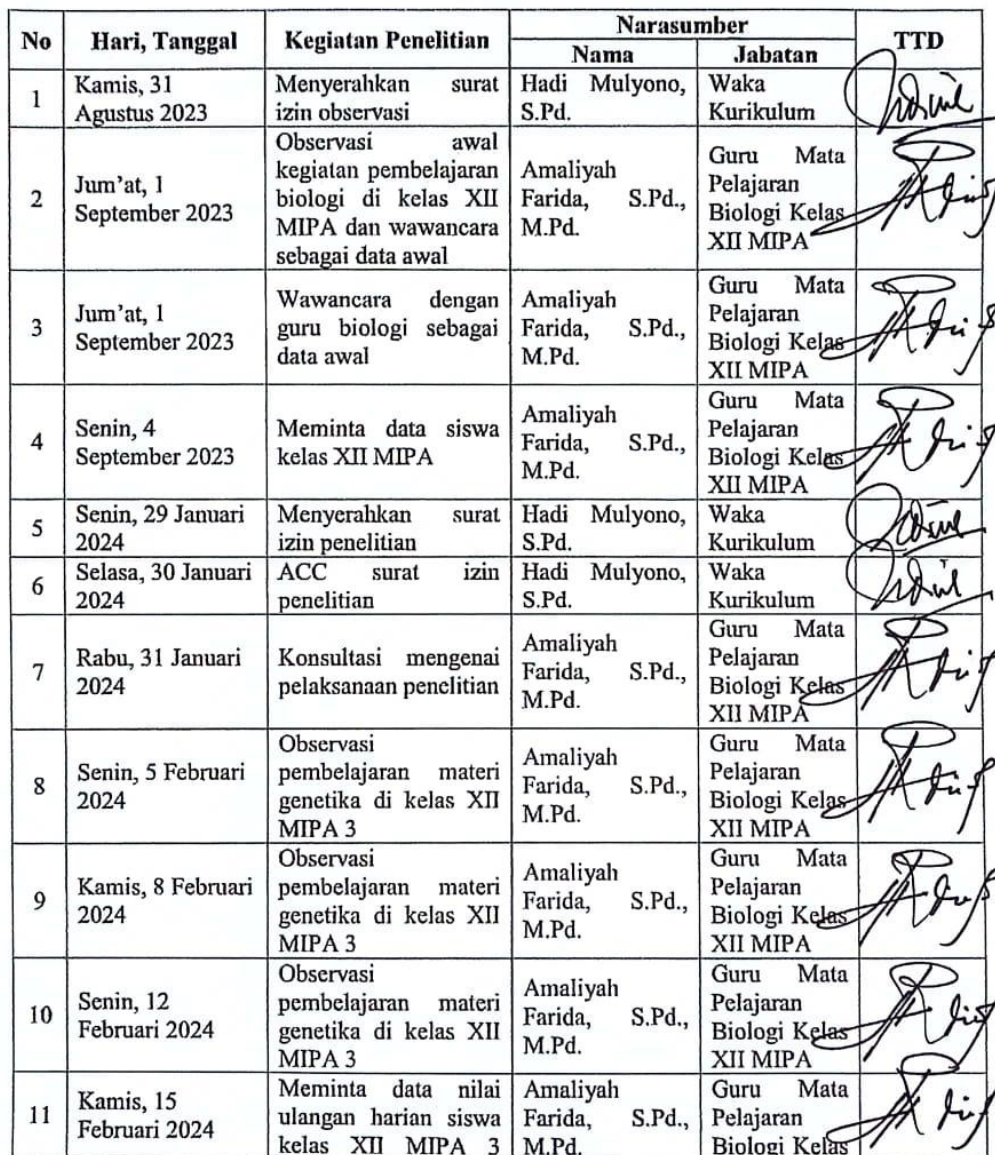 No Hari, Tanggal Kegiatan Penelitian Narasumber TTD
Nama Jabatan
1
Kamis, 31
Agustus 2023
Menyerahkan surat
izin observasi
Hadi Mulyono,
S.Pd.
Waka
Kurikulum
2
Jum'at, 1
September 2023
Observasi awal
kegiatan pembelajaran
biologi di kelas XII
MIPA dan wawancara
sebagai data awal
Amaliyah
Farida, S.Pd.,
M.Pd.
Guru Mata
Pelajaran
Biologi Kelas
XII MIPA
3
Jum'at, 1
September 2023
Wawancara dengan
guru biologi sebagai
data awal
Amaliyah
Farida, S.Pd.,
M.Pd.
Guru Mata
Pelajaran
Biologi Kelas
XII MIPA
4
Senin, 4
September 2023
Meminta data siswa
kelas XII MIPA
Amaliyah
Farida, S.Pd.,
M.Pd.
Guru Mata
Pelajaran
Biologi Kelas
XII MIPA
5
Senin, 29 Januari
2024
Menyerahkan surat
izin penelitian
Hadi Mulyono,
S.Pd.
Waka
Kurikulum
6
Selasa, 30 Januari
2024
ACC surat izin
penelitian
Hadi Mulyono,
S.Pd.
Waka
Kurikulum
7
Rabu, 31 Januari
2024
Konsultasi mengenai
pelaksanaan penelitian
Amaliyah
Farida, S.Pd.,
M.Pd.
Guru Mata
Pelajaran
Biologi Kelas
XII MIPA
8
Senin, 5 Februari
2024
Observasi
pembelajaran materi
genetika di kelas XII
MIPA 3
Amaliyah
Farida, S.Pd.,
M.Pd.
Guru Mata
Pelajaran
Biologi Kelas
XII MIPA
9
Kamis, 8 Februari
2024
Observasi
pembelajaran materi
genetika di kelas XII
MIPA 3
Amaliyah
Farida, S.Pd.,
M.Pd.
Guru Mata
Pelajaran
Biologi Kelas
XII MIPA
10
Senin, 12
Februari 2024
Observasi
pembelajaran materi
genetika di kelas XII
MIPA 3
Amaliyah
Farida, S.Pd.,
M.Pd.
Guru Mata
Pelajaran
Biologi Kelas
XII MIPA
11
Kamis, 15
Februari 2024
Meminta data nilai
ulangan harian siswa
kelas XII MIPA 3
Amaliyah
Farida, S.Pd.,
M.Pd.
Guru Mata
Pelajaran
Biologi Kelas